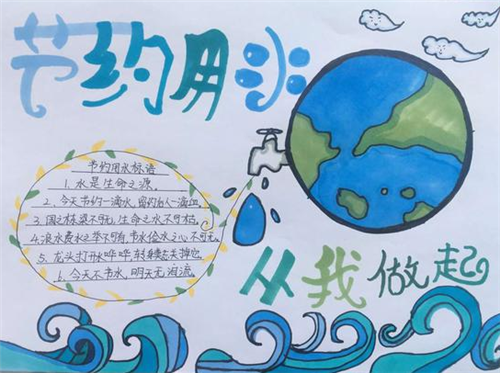 节约用水
节约用水标语
1. 水是生命之源。
2. 今天节约一滴水, 留给后人一滴血
3. 国之栋梁不可无, 生命之水不可枯
4. 浪水费水之举不可有, 节水俭水之心不可无
5. 龙头打开水哗哗,
6. 今天不节水, 明天无泪流
从我做起